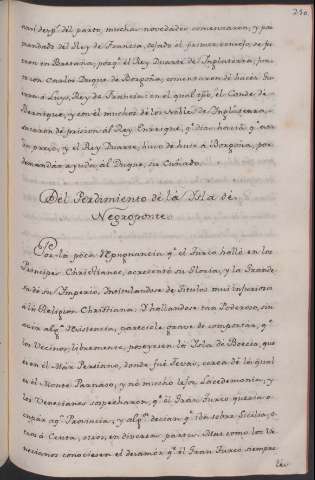 210.
con desp.s del parto, muchas novedades comenzaron, y por
mandado del Rey de Francia, dejado el primer consejo, se
en Bretaña, porq.e el Rey Duarte de Inglaterra, jun
to con Carlos Duque de Borgoña, comenzaron de hacer Gue
rra à Luys, Rey de Francia: con el qual el Conde de
Beroique, y con el muchos de los Nobles de Inglaterra,
sacaron de prision al Rey Enrrique, q.e dias havia q.e esta
va preso, y el Rey Duarte, huvo de huir à Borgoña, por
demandar ayuda al Duque, su Cuñado.
Del Perdimiento de la Isla de
Negroponte.
Por la poca Repugnancia q.e el Turco halló en los
Principes Christianos, acrecentó su Gloria, y la Grande
za de su Imperio, Instituladose de Titulos mui injuriosos
à la Religion Christiana. Y hallandose tan Poderoso, sin
acia alg.a Resistencia, pareciole grave de comportar, q.e
los Vecinos, libremente, poseyesen la Isla de Boecia, que
es en el Mar Persiano, donde fué Tevas, cerca de la qual
es el Monte Parnaso, y no mucho lejos Lacedemonia, y
los Venecianos sospecharon, q.e el Gran Turco queria o
cupar ag.a Provincia, y alg.s decian q.e iba sobre Sicilia, o
tros à Ceuta, otros, en diversas partes. Mas como los Ve
necianos conociesen el desamor q.e el Gran Turco siempre